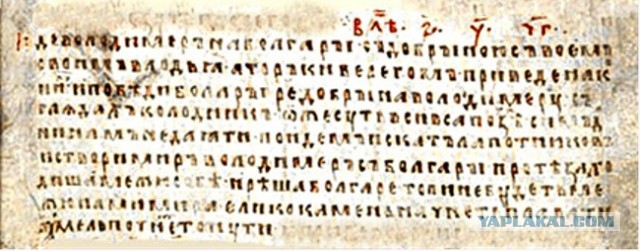 В лѣ҃ ҂ѕ҃ у҃ ч҃г
иде володимеръ на болгары с добрыною съ воемъ
своимъ в лодьꙗ а торъки берегомъ приведе на к
ни и побѣди болгары ре добрына володимеру съ
глѧдахъ колодникъ ѡже суть вси в сапозѣ сим да
ни намъ не даꙗти поидемъ искатъ лапотниковъ
и створи миръ володимеръ съ болгары и ротѣ
диша межю собѣ и рѣша болгаре не будеть ме
жю нами мира елико камень
хмель почнет тонути
YAPLAKAL.COM